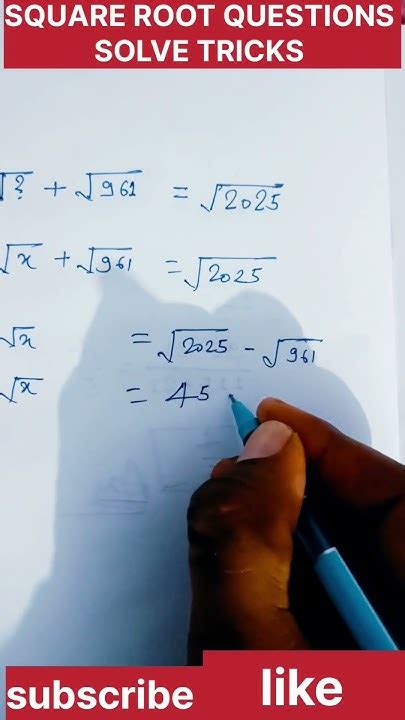 SQUARE ROOT QUESTIONS
SOLVE TRICKS
√? + √961 = √2025
√x + √961 = √2025
√x = √2025 - √961
√x = 45
subscribe
like